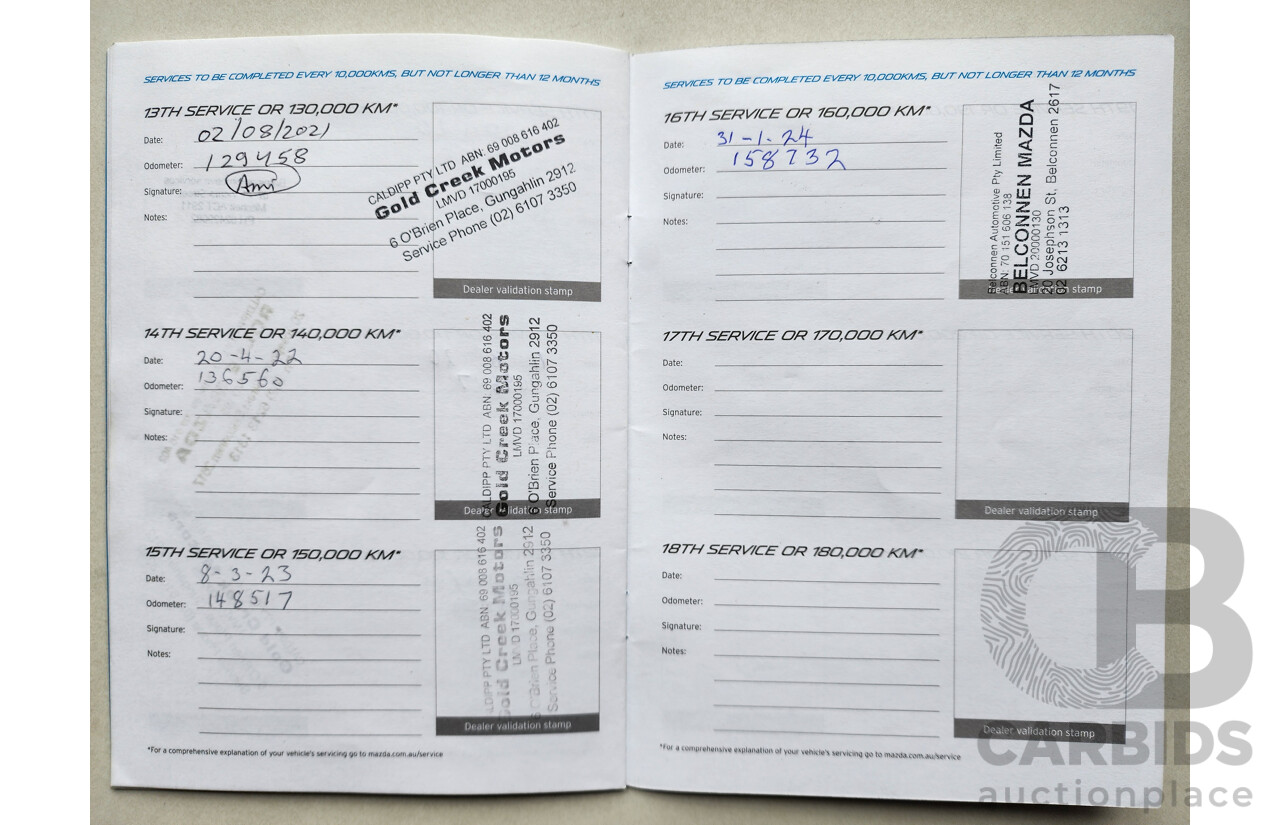 SERVICES TO BE COMPLETED EVERY 10,000KMS, BUT NOT LONGER THAN 12 MONTHS
13TH SERVICE OR 130,000 KM*
Date: 02/08/2021
Odometer: 129458
Signature: Ami
Notes:
CALDIPP PTY LTD ABN: 69 008 616 402
Gold Creek Motors
LMVD 17000195
6 O'Brien Place, Gungahlin 2912
Service Phone (02) 6107 3350
Dealer validation stamp
14TH SERVICE OR 140,000 KM*
Date: 20-4-22
Odometer: 136560
Signature:
Notes:
CALDIPP PTY LTD ABN: 69 008 616 402
Gold Creek Motors
LMVD 17000195
6 O'Brien Place, Gungahlin 2912
Service Phone (02) 6107 3350
Dealer validation stamp
15TH SERVICE OR 150,000 KM*
Date: 8-3-23
Odometer: 148517
Signature:
Notes:
CALDIPP PTY LTD ABN: 69 008 616 402
Gold Creek Motors
LMVD 17000195
6 O'Brien Place, Gungahlin 2912
Service Phone (02) 6107 3350
Dealer validation stamp
*For a comprehensive explanation of your vehicle's servicing go to mazda.com.au/service
SERVICES TO BE COMPLETED EVERY 10,000KMS, BUT NOT LONGER THAN 12 MONTHS
16TH SERVICE OR 160,000 KM*
Date: 31-1-24
Odometer: 158732
Signature:
Notes:
Belconnen Automotive Pty Limited
ABN: 70 151 606 138
BELCONNEN MAZDA
LMVD 20000130
20 Josephson St. Belconnen 2617
02 6213 1313
Dealer validation stamp
17TH SERVICE OR 170,000 KM*
Date:
Odometer:
Signature:
Notes:
Dealer validation stamp
18TH SERVICE OR 180,000 KM*
Date:
Odometer:
Signature:
Notes:
Dealer validation stamp
*For a comprehensive explanation of your vehicle's servicing go to mazda.com.au/service
CARBIDS
auctionplace